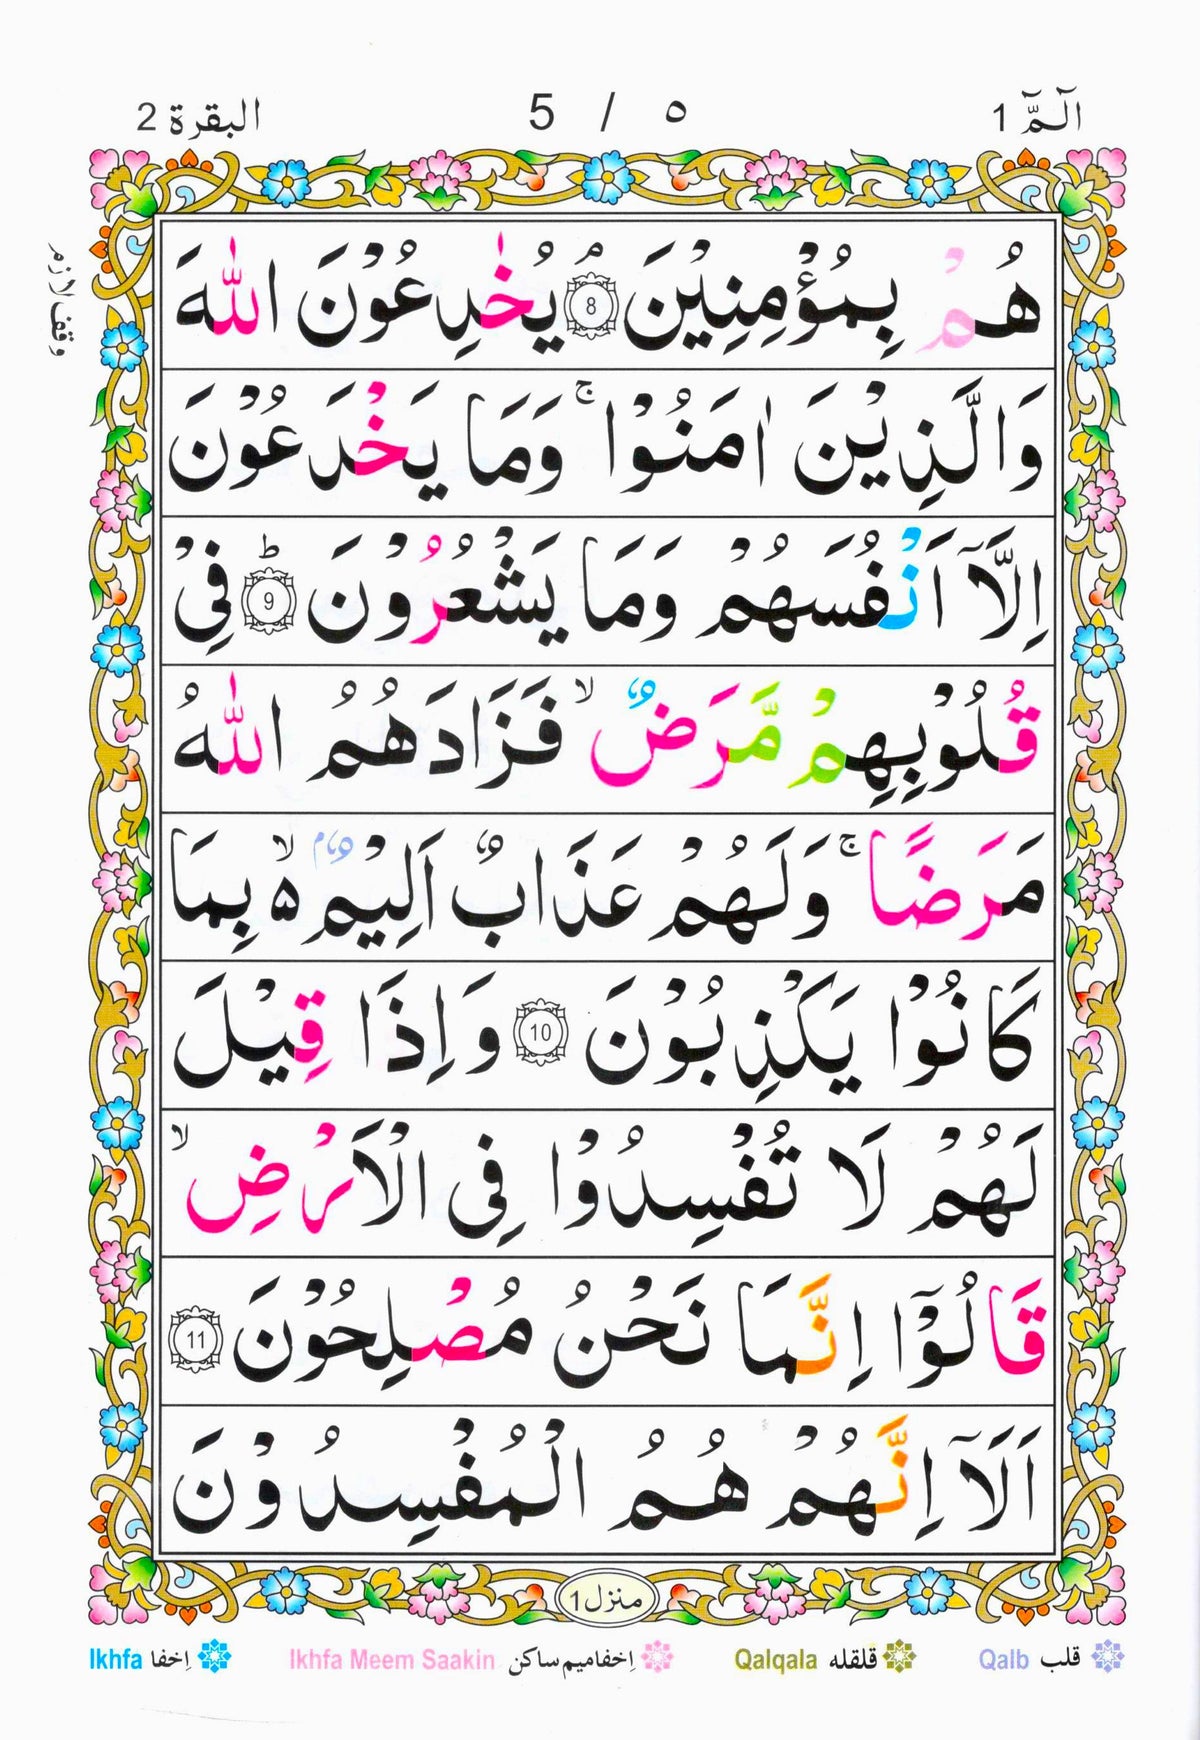 الٓمّٓ 1
5 / ٥
البقرة 2
وقف لازم
هُمْ بِمُؤْمِنِيْنَ ۘ 8 يُخٰدِعُوْنَ اللّٰهَ
وَالَّذِيْنَ اٰمَنُوْا ۚ وَمَا يَخْدَعُوْنَ
اِلَّآ اَنْفُسَهُمْ وَمَا يَشْعُرُوْنَ ؕ 9 فِيْ
قُلُوْبِهِمْ مَّرَضٌ ۙ فَزَادَهُمُ اللّٰهُ
مَرَضًا ۚ وَلَهُمْ عَذَابٌ اَلِيْمٌۢ ۵ ۙ بِمَا
كَانُوْا يَكْذِبُوْنَ 10 وَاِذَا قِيْلَ
لَهُمْ لَا تُفْسِدُوْا فِى الْاَرْضِ ۙ
قَالُوْٓا اِنَّمَا نَحْنُ مُصْلِحُوْنَ 11
اَلَآ اِنَّهُمْ هُمُ الْمُفْسِدُوْنَ
منزل 1
قلب Qalb
قلقله Qalqala
اِخفامیم ساکن Ikhfa Meem Saakin
اِخفا Ikhfa